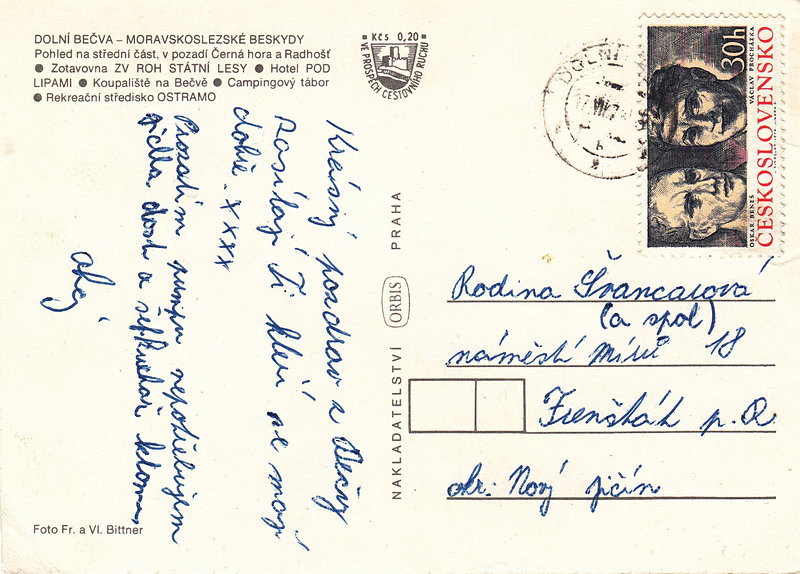 DOLNÍ BEČVA – MORAVSKOSLEZSKÉ BESKYDY
Pohled na střední část, v pozadí Černá hora a Radhošť
● Zotavovna ZV ROH STÁTNÍ LESY ● Hotel POD
LIPAMI ● Koupaliště na Bečvě ● Campingový tábor
● Rekreační středisko OSTRAMO
Kčs 0,20
VE PROSPĚCH CESTOVNÍHO RUCHU
DOLNÍ
30h
ČESKOSLOVENSKO
OSKAR BENEŠ
VÁCLAV PROCHÁZKA
Krásný pozdrav z Bečvy
Posílají Ti kteří se mají
dobře. xxxx
Prozatím pumpu nepotřebujem
jídla dost a šéfkuchař
ahoj
NAKLADATELSTVÍ ORBIS PRAHA
Rodina Švancarová
(a spol)
náměstí Míru 18
Frenštát p. R
okr. Nový Jičín
Foto Fr. a Vl. Bittner